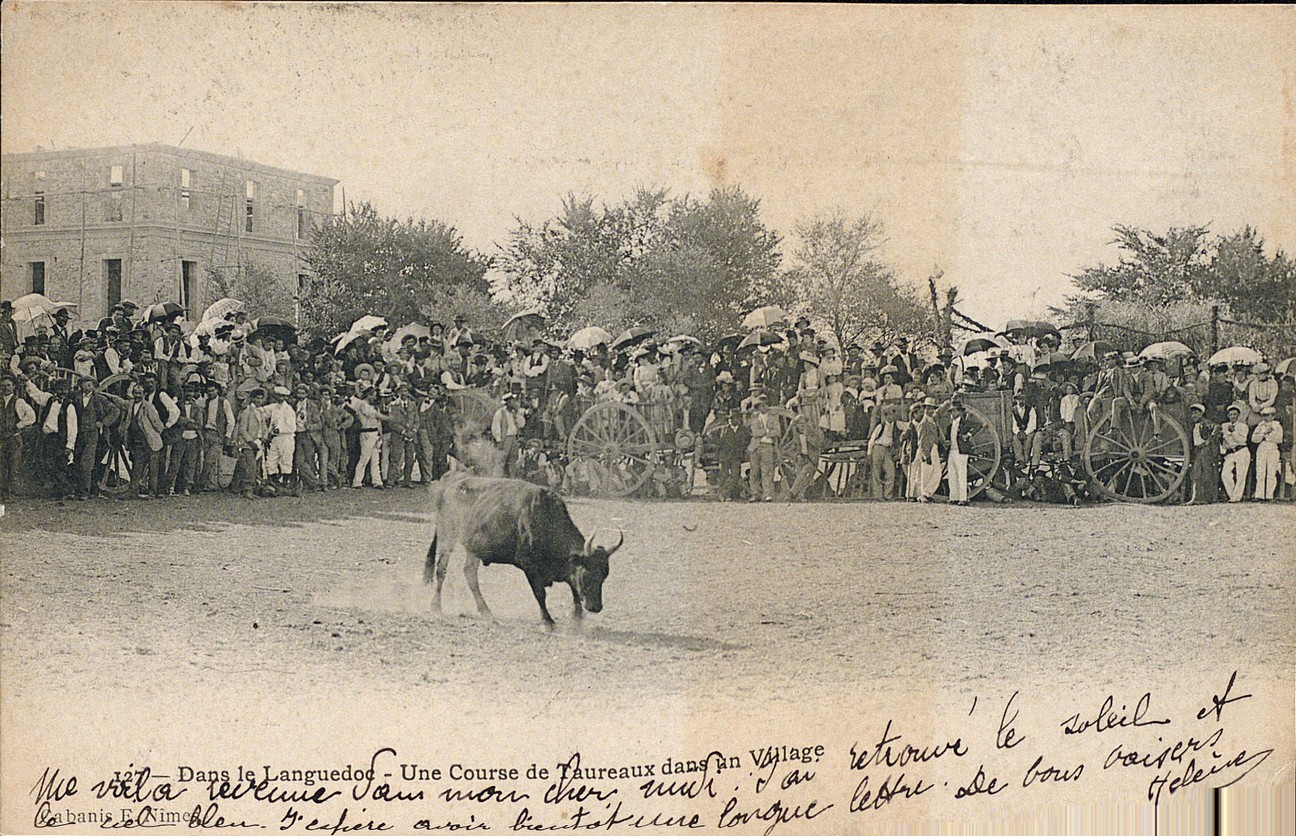 127 — Dans le Languedoc - Une Course de Taureaux dans un Village
Cabanis E. Nimes
Me voilà revenue dans mon cher midi. J'ai retrouvé le soleil et
le ciel bleu. J'espère avoir bientôt une longue lettre. De bons baisers
Helène